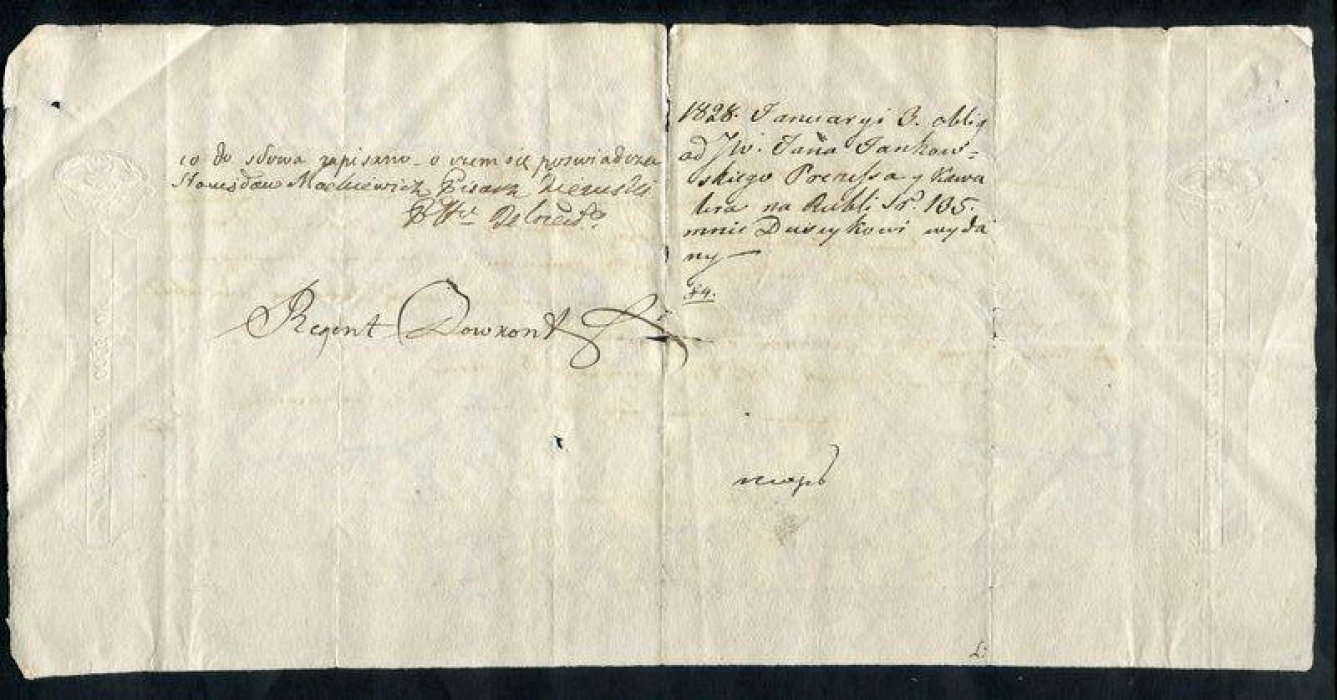 co do słowa zapisano o czem się poswiadcza
Stanisław Mackiewicz Pisarz Ziemski
Regent Dowkont
1828. Januaryi 3. oblig
od JW. Jana Jankow=
skiego Prezessa y Kawa
lera na Rubli Sr. 135.
mnie Duseykowi wyda
ny